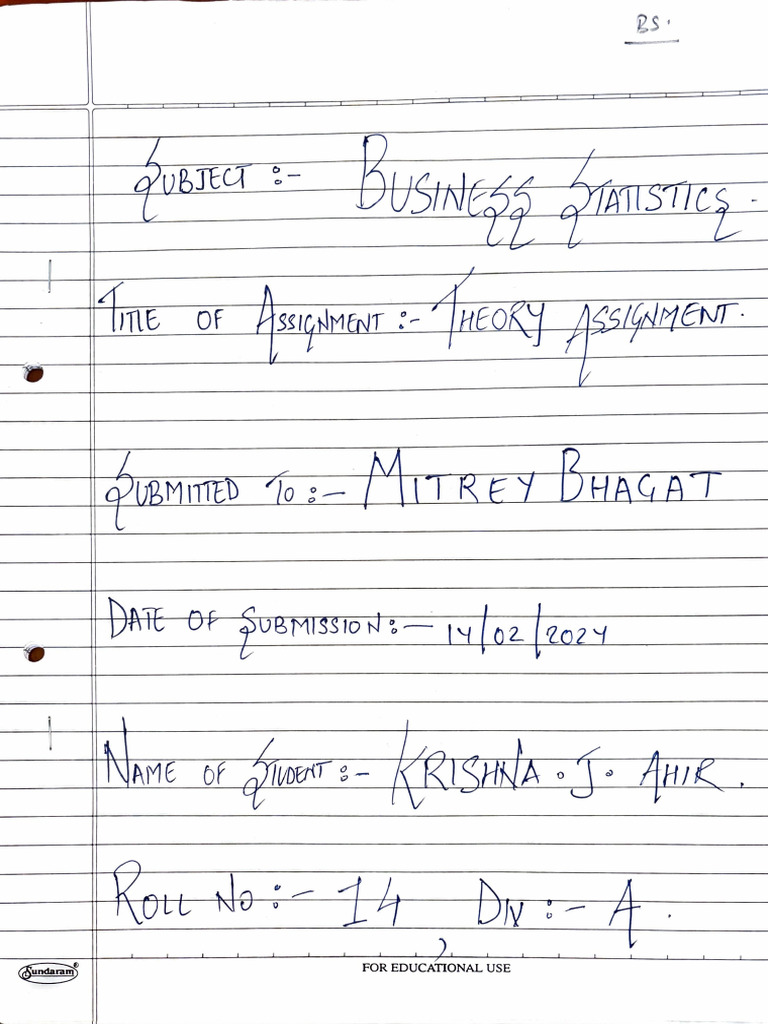 BS.
SUBJECT :- BUSINESS STATISTICS.
TITLE OF ASSIGNMENT :- THEORY ASSIGNMENT.
SUBMITTED TO :- MITREY BHAGAT
DATE OF SUBMISSION :- 14/02/2024
NAME OF STUDENT :- KRISHNA . J . AHIR.
ROLL NO :- 14 DIV :- A.
Sundaram®
FOR EDUCATIONAL USE